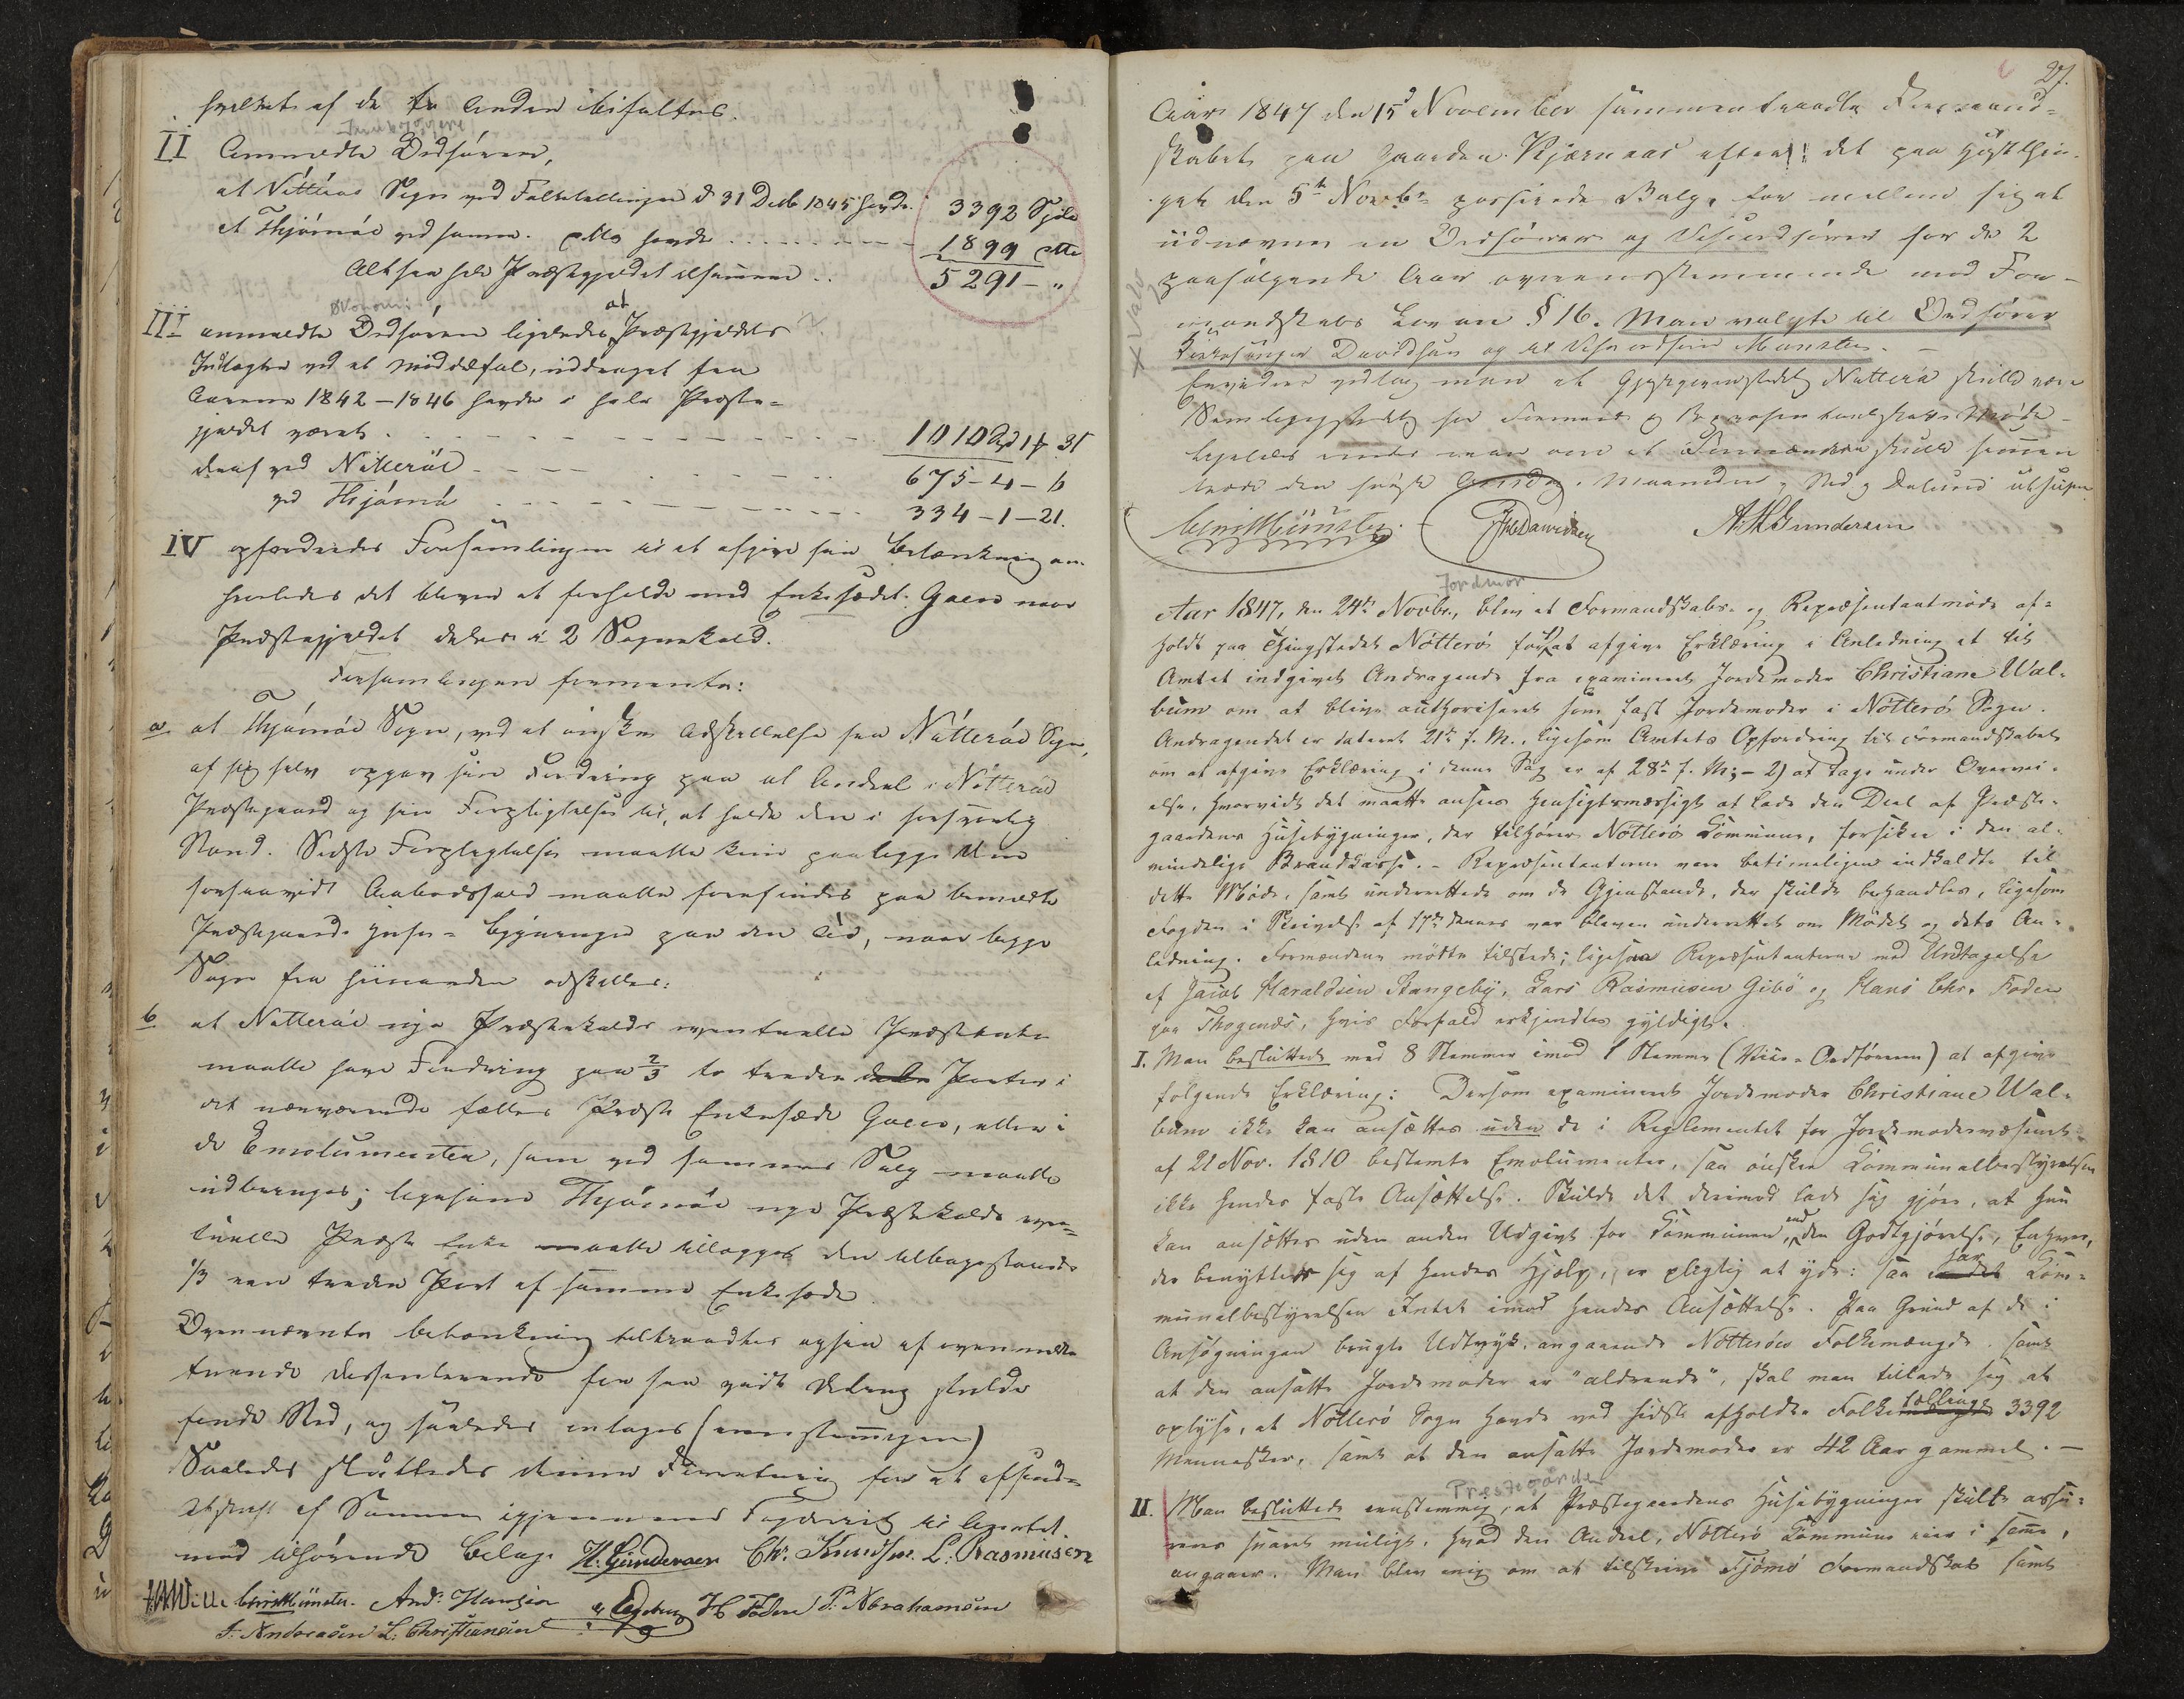 hvilket af de to Anden bifaltes.
II Anmeldte Ordføreren,
at Nøtterøe Sogn ved Folketællingen d 31 Decbr 1845 havde 3392 Sjele
at Thjømøe ved samme ditto havde 1899 ditto
Altsaa hele Præstegjeldet tilsammen 5291 - "
Økonomi
III anmeldte Ordføreren ligeledes at Præstegjeldets
Indtægter ved et Middeltal, uddraget fra
Aarene 1842-1846 havde i hele Præste-
gjeldet været 1010
deraf ved Nøtterøe 675-4-6
ved Thjømø 334-1-21.
IV opfordredes Forsamlingen til at afgive sin Betænkning om
hvorledes det bliver at forholde med Enkesædet Gaasø naar
Præstegjeldet deles i 2 Sognekald.
Forsamlingen formente:
a at Thjømøe Sogn, ved at ønske Adskillelse fra Nøtterøe Sogn,
af sig selv opgav sin Fordring paa al Andeel i Nøtterøe
Præstegaard og sin Forpligtelse til, at holde den i forsvarlig
Stand. Sidste Forpligtelse maatte kun paaligge dem
forsaavidt Aabodsfald maatte forefindes paa bemeldte
Præstegaards Huse-Bygninger paa den Tid, naar begge
Sogne fra hinanden adskilles.
b at Nøtterøe nye Præstekalds eventuelle Præsteenke
maatte have Fordring paa 2/3 to tredie Parter i
det nærværende fælles Præste Enkesæde Gaasø, eller i
de Emolumenter, som ved sammes Salg maatte
indbringes; ligesom Thjømøe nye Præstekalds even-
tuelle Præste Enke maatte tillægges den tilbagestaaende
1/3 een tredie Part af samme Enkesæde.
Ovennævnte Betænkning tiltraadtes ogsaa af ovenmeldte
tvende dissenterende for saa vidt Deling skulde
finde Sted, og saaledes antages (eenstemmigen)
Saaledes sluttedes denne Forretning for at afsende
Afskrift af Samme igjennem Fogderiet til Amtet.
med tilhørende Bilage H. Gundersen Chr. Knudsen L. Rasmusen
Chris Münster. And. Hansen H Foden P. Abrahamsen
F. Andreasen L. Christiansen
27.
Aar 1847 den 15d November sammentraadte Formand-
skabet paa Gaarden Kjærnaas efter det paa Høstthin-
get den 5te Novbr passerede Valg, for mellem sig at
udnævne en Ordfører og Viseordfører for de 2
paafølgende Aar overeensstemmende med For-
mandskabs Loven § 16. Man valgte til Ordfører
Kirkesanger Davidsen og til Viseordfører Münster.
Endvidere vedtog man at Gjestgiverstedet Nøtterø skulde være
Samlingsstedet for Formand- og Repræsentantskabs Møde
ligeledes enedes man om at Formændene skulde sammen
træde den første Onsdag i Maaneden.
Chris Münster. Davidsen A M Gundersen
Jordmor
Aar 1847, den 24de Novbr., blev et Formandskabs- og Repræsentantmøde af-
holdt paa Thingstedet Nøtterø for 1) at afgive Erklæring i Anledning et til
Amtet indgivet Andragende fra examineret Jordemoder Christiane Wal-
bum om at blive authoriseret som fast Jordemoder i Nøtterø Sogn.
Andragendet er dateret 21de f. M., ligesom Amtets Opfordring til Formandskabet
om at afgive Erklæring i denne Sag er af 28de f. M; - 2) at tage under Overvei-
else, hvorvidt det maatte ansees hensigtsmæssigt at lade den Deel af Præste-
gaardens Husebygninger, der tilhører Nøtterø Kommune, forsikre i den al-
mindelige Brandkasse. - Repræsentanterne vare betimeligen indkaldte til
dette Møde, samt underrettede om de Gjenstande, der skulde behandles, ligesom
Fogden i Skrivelse af 17de dennes var bleven underrettet om Mødet og dets An-
ledning. Formændene mødte tilstede; ligesaa Repræsentanterne med Undtagelse
af Jacob Haraldsen Stangeby, Lars Rasmusen Gibø og Hans Chr. Foden
paa Thogenæs, hvis Forfald erkjendtes gyldigt.
I. Man besluttede med 8 Stemmer imod 1 Stemme (Vice-Ordføreren) at afgive
følgende Erklæring: Dersom examineret Jordemoder Christiane Wal-
bum ikke kan ansættes uden de i Reglementet for Jordemodervæsenet
af 21 Nov. 1810 bestemte Emolumenter, saa ønsker Kommunalbestyrelsen
ikke hendes faste Ansættelse. Skulde det derimod lade sig gjøre, at hun
kan ansættes uden anden Udgivt for Kommunen, end den Godtgjørelse, Enhver,
der benytter sig af hendes Hjelp, er pligtig at yde: saa har Kom-
munalbestyrelsen Intet imod hendes Ansættelse. Paa Grund af de i
Ansøgningen brugte Udtryk, angaaende Nøtterøes Folkemængde, samt
at den ansatte Jordemoder er "aldrende", skal man tillade sig at
oplyse, at Nøtterø Sogn havde ved sidst afholdte Folketælling 3392
Mennesker, samt at den ansatte Jordemoder er 42 Aar gammel. —
Prestegården
II. Man besluttede eenstemmig, at Præstegaardens Husebygninger skulle assu-
reres snarest muligt, hvad den Andeel, Nøtterø Kommune eier i samme,
angaaer. Man blev enig om at tilskrive Tjømø Formandskab samt